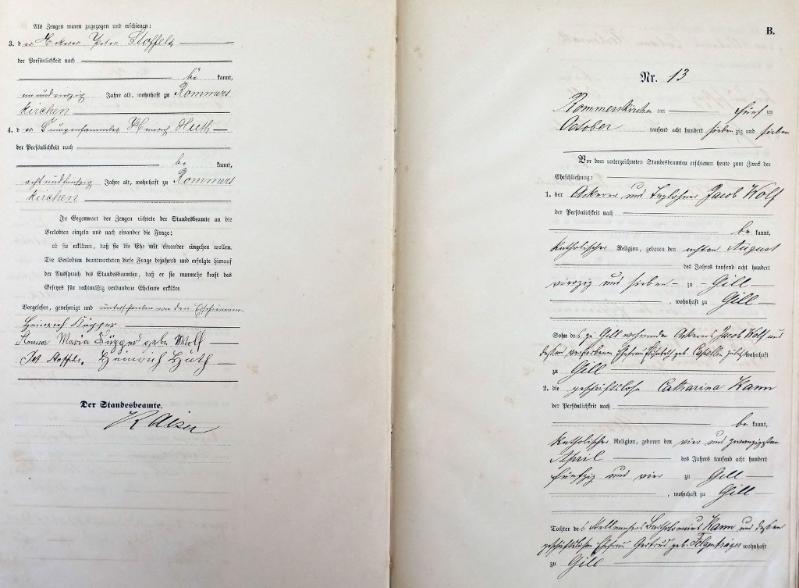 Als Zeugen waren zugegen und erschienen:
3. der Ackerer Peter Stoffels
der Persönlichkeit nach
be kannt,
Jahre alt, wohnhaft zu Rommers
kirchen
4. der Heinrich Huth
der Persönlichkeit nach
be kannt,
Jahre alt, wohnhaft zu Rommers
kirchen
In Gegenwart der Zeugen richtete der Standesbeamte an die
Verlobten einzeln und nach einander die Frage:
ob sie erklären, daß sie die Ehe mit einander eingehen wollen.
Die Verlobten beantworteten diese Frage bejahend und erfolgte hierauf
der Ausspruch des Standesbeamten, daß er sie nunmehr kraft des
Gesetzes für rechtmäßig verbundene Eheleute erkläre.
Vorgelesen, genehmigt und unterschrieben von den Erschienenen
Heinrich
Maria geb. Wolf
Heinrich Huth
Der Standesbeamte.
Kaiser
B.
Nr. 13
Rommerskirchen am fünf ten
October tausend acht hundert sieben zig und sieben
Vor dem unterzeichneten Standesbeamten erschienen heute zum Zweck der
Eheschließung:
1. der Ackerer und Jacob Wolf
der Persönlichkeit nach
be kannt,
katholischer Religion, geboren den achten August
des Jahres tausend acht hundert
vierzig und sieben zu Gill
, wohnhaft zu Gill
Sohn des zu Gill wohnenden Ackerers Jacob Wolf und
dessen verstorbenen Ehefrau Elisabeth geb. wohnhaft
zu Gill
2. die geschäftslose Catharina Kann
der Persönlichkeit nach
be kannt,
katholischer Religion, geboren den vier und zwanzigsten
April des Jahres tausend acht hundert
fünfzig und vier zu Gill
, wohnhaft zu Gill
Tochter des Stellmachers Bartholomäus Kann und dessen
geschäftslosen Ehefrau Gertrud geb. wohnhaft
zu Gill